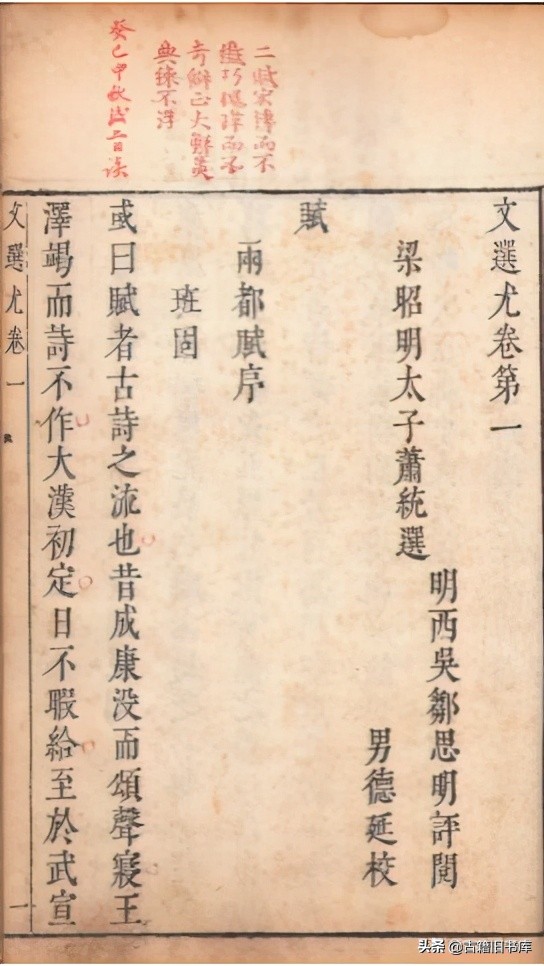 二賦博而不
巧而不
奇僻正大
典不浮
癸巳中秋三日
文選尤卷第一
梁昭明太子蕭統選
明西吳鄒思明評閱
男德延校
賦
兩都賦序
班固
或曰賦者古詩之流也昔成康没而頌聲寢王
澤竭而詩不作大漢初定日不暇給至於武宣
文選尤卷一
一
头条 @古籍旧书库